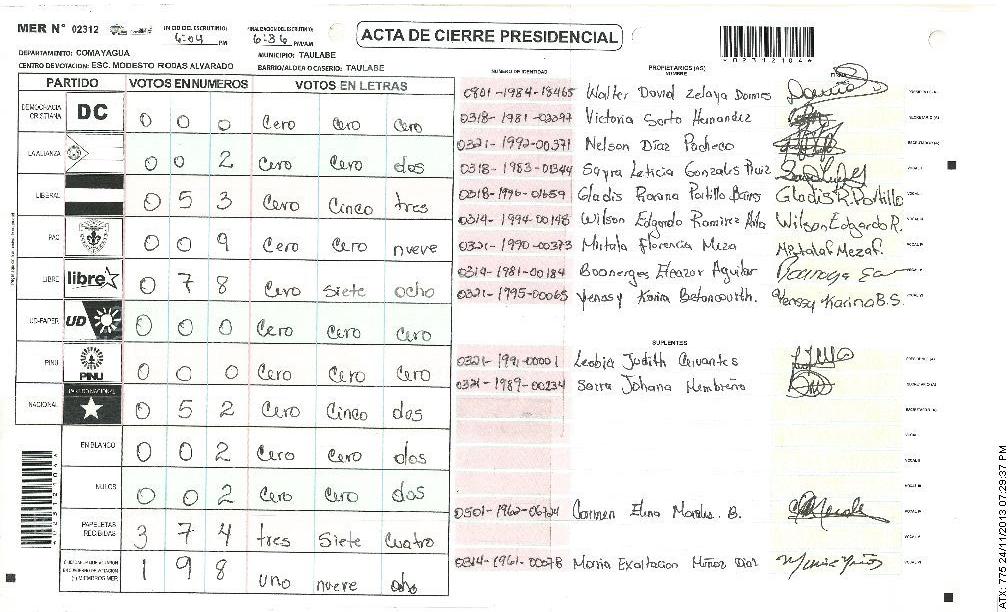 MER N° 02312
INICIO DEL ESCRUTINIO: 6:04 PM
FINALIZACION DEL ESCRUTINIO: 6:36 PM/AM
ACTA DE CIERRE PRESIDENCIAL
02312046
DEPARTAMENTO: COMAYAGUA
MUNICIPIO: TAULABE
CENTRO DE VOTACION: ESC. MODESTO RODAS ALVARADO
BARRIO/ALDEA O CASERIO: TAULABE
PARTIDO VOTOS EN NUMEROS VOTOS EN LETRAS
DEMOCRACIA CRISTIANA DC 0 0 0 Cero Cero Cero
LA ALIANZA 0 0 2 Cero Cero dos
LIBERAL 0 5 3 Cero Cinco tres
PAC 0 0 9 Cero Cero nueve
LIBRE libre 0 7 8 Cero Siete ocho
UD-FAPER UD 0 0 0 Cero Cero Cero
PINU PINU 0 0 0 Cero Cero Cero
NACIONAL PARTIDO NACIONAL 0 5 2 Cero Cinco dos
EN BLANCO 0 0 2 Cero Cero dos
NULOS 0 0 2 Cero Cero dos
PAPELETAS RECIBIDAS 3 7 4 tres Siete Cuatro
1 9 8 uno nueve ocho
NUMERO DE IDENTIDAD
PROPIETARIOS (AS)
NOMBRE
FIRMA
0801-1984-18465 Walter David Zelaya
0318-1981-02097 Victoria Sarto Hernandez
0321-1992-00371 Nelson Díaz Pacheco
0318-1983-01344 Sayra Leticia Gonzales Ruiz
0318-1990-01659 Gladis Roxana Portillo Gladis R. Portillo
0314-1994-00148 Wilson Edgardo Ramirez Wilson Edgardo R.
0321-1990-00373 Mirtala Florencia Meza Mirtala F Meza F.
0314-1981-00184 Boanerges Eleazar Aguilar
0321-1995-00065 Yenssy Karina Betancourth. Yenssy Karina B.S.
SUPLENTES
0321-1991-00001 Leobia Judith Cervantes
0321-1989-00234 Sarra Johana Membreño
0501-1962-06724 Carmen Elina Morales. B.
0314-1961-00078 Maria Exaltacion Muñoz Diaz
ATX: 775 24/11/2013 07:29:37 PM